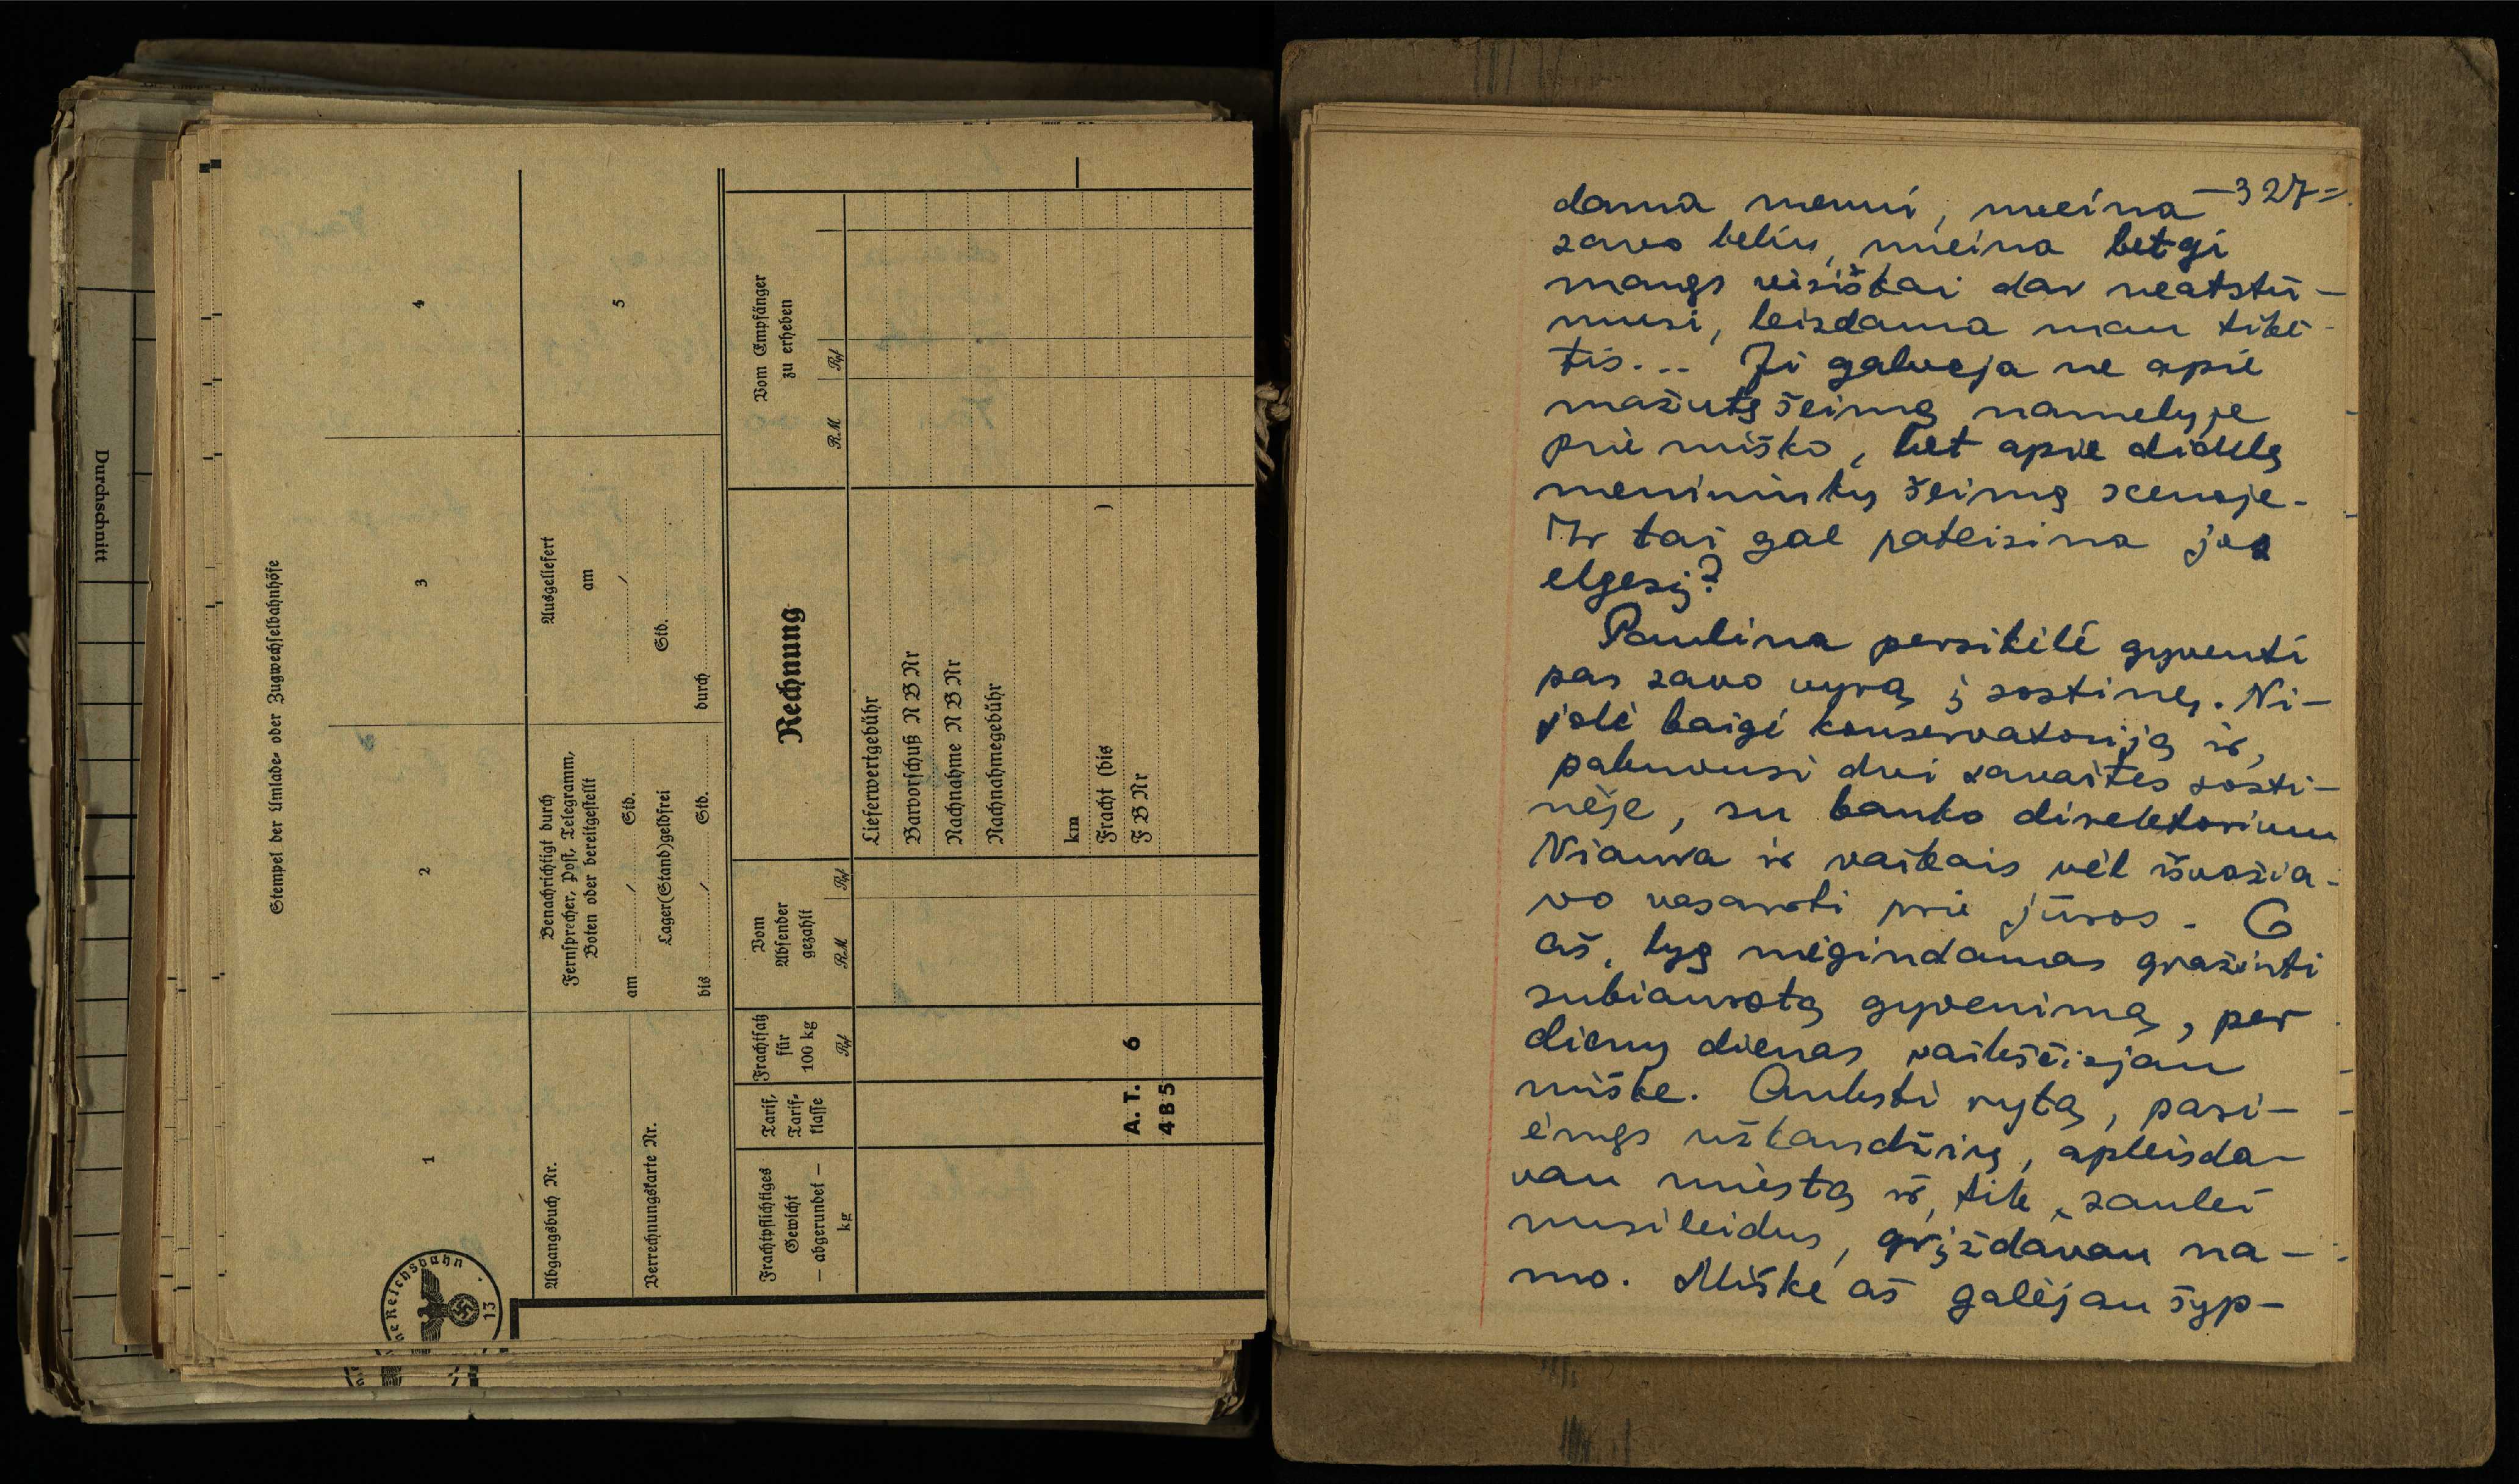 Durchschnitt
Stempel der Umlade- oder Zugwechselbahnhöfe
1
2
3
4
Abgangsbuch Nr.
Verrechnungskarte Nr.
Benachrichtigt durch
Fernsprecher, Post, Telegramm,
Boten oder bereitgestellt
am / Std.
Lager(Stand)geldfrei
bis / Std.
Ausgeliefert
am
/
Std.
durch
5
Frachtpflichtiges
Gewicht
— abgerundet —
kg
Tarif,
Tarif-
klasse
Frachtsatz
für
100 kg
Rpf
Vom
Absender
gezahlt
RM Rpf
Rechnung
Vom Empfänger
zu erheben
RM Rpf
Lieferwertgebühr
Barvorschuß N B Nr
Nachnahme N B Nr
Nachnahmegebühr
km
Fracht (bis )
F B Nr
A. T. 6
4 B 5
Reichsbahn
13
—327—
dama menui, nueina
savo keliu, nueina betgi
manęs visiškai dar neatstū-
musi, leisdama man tikė-
tis... Ji galvoja ne apie
mažutę šeimą namelyje
prie miško, bet apie didelę
menininkų šeimą scenoje.
Ir tai gal pateisina jos
elgesį?
Paulina persikėlė gyventi
pas savo vyrą į sostinę. Ni-
jolė baigė konservatoriją ir,
pabuvusi dvi savaites sosti-
nėje, su banko direktorium
Niaura ir vaikais vėl išvažia-
vo vasaroti prie jūros. O
aš, lyg mėgindamas gražinti
subiaurotą gyvenimą, per
dienų dienas vaikščiojau
miške. Anksti rytą, pasi-
ėmęs užkandžių, apleisda-
vau miestą ir, tik saulei
nusileidus, grįždavau na-
mo. Miške aš galėjau šyp-